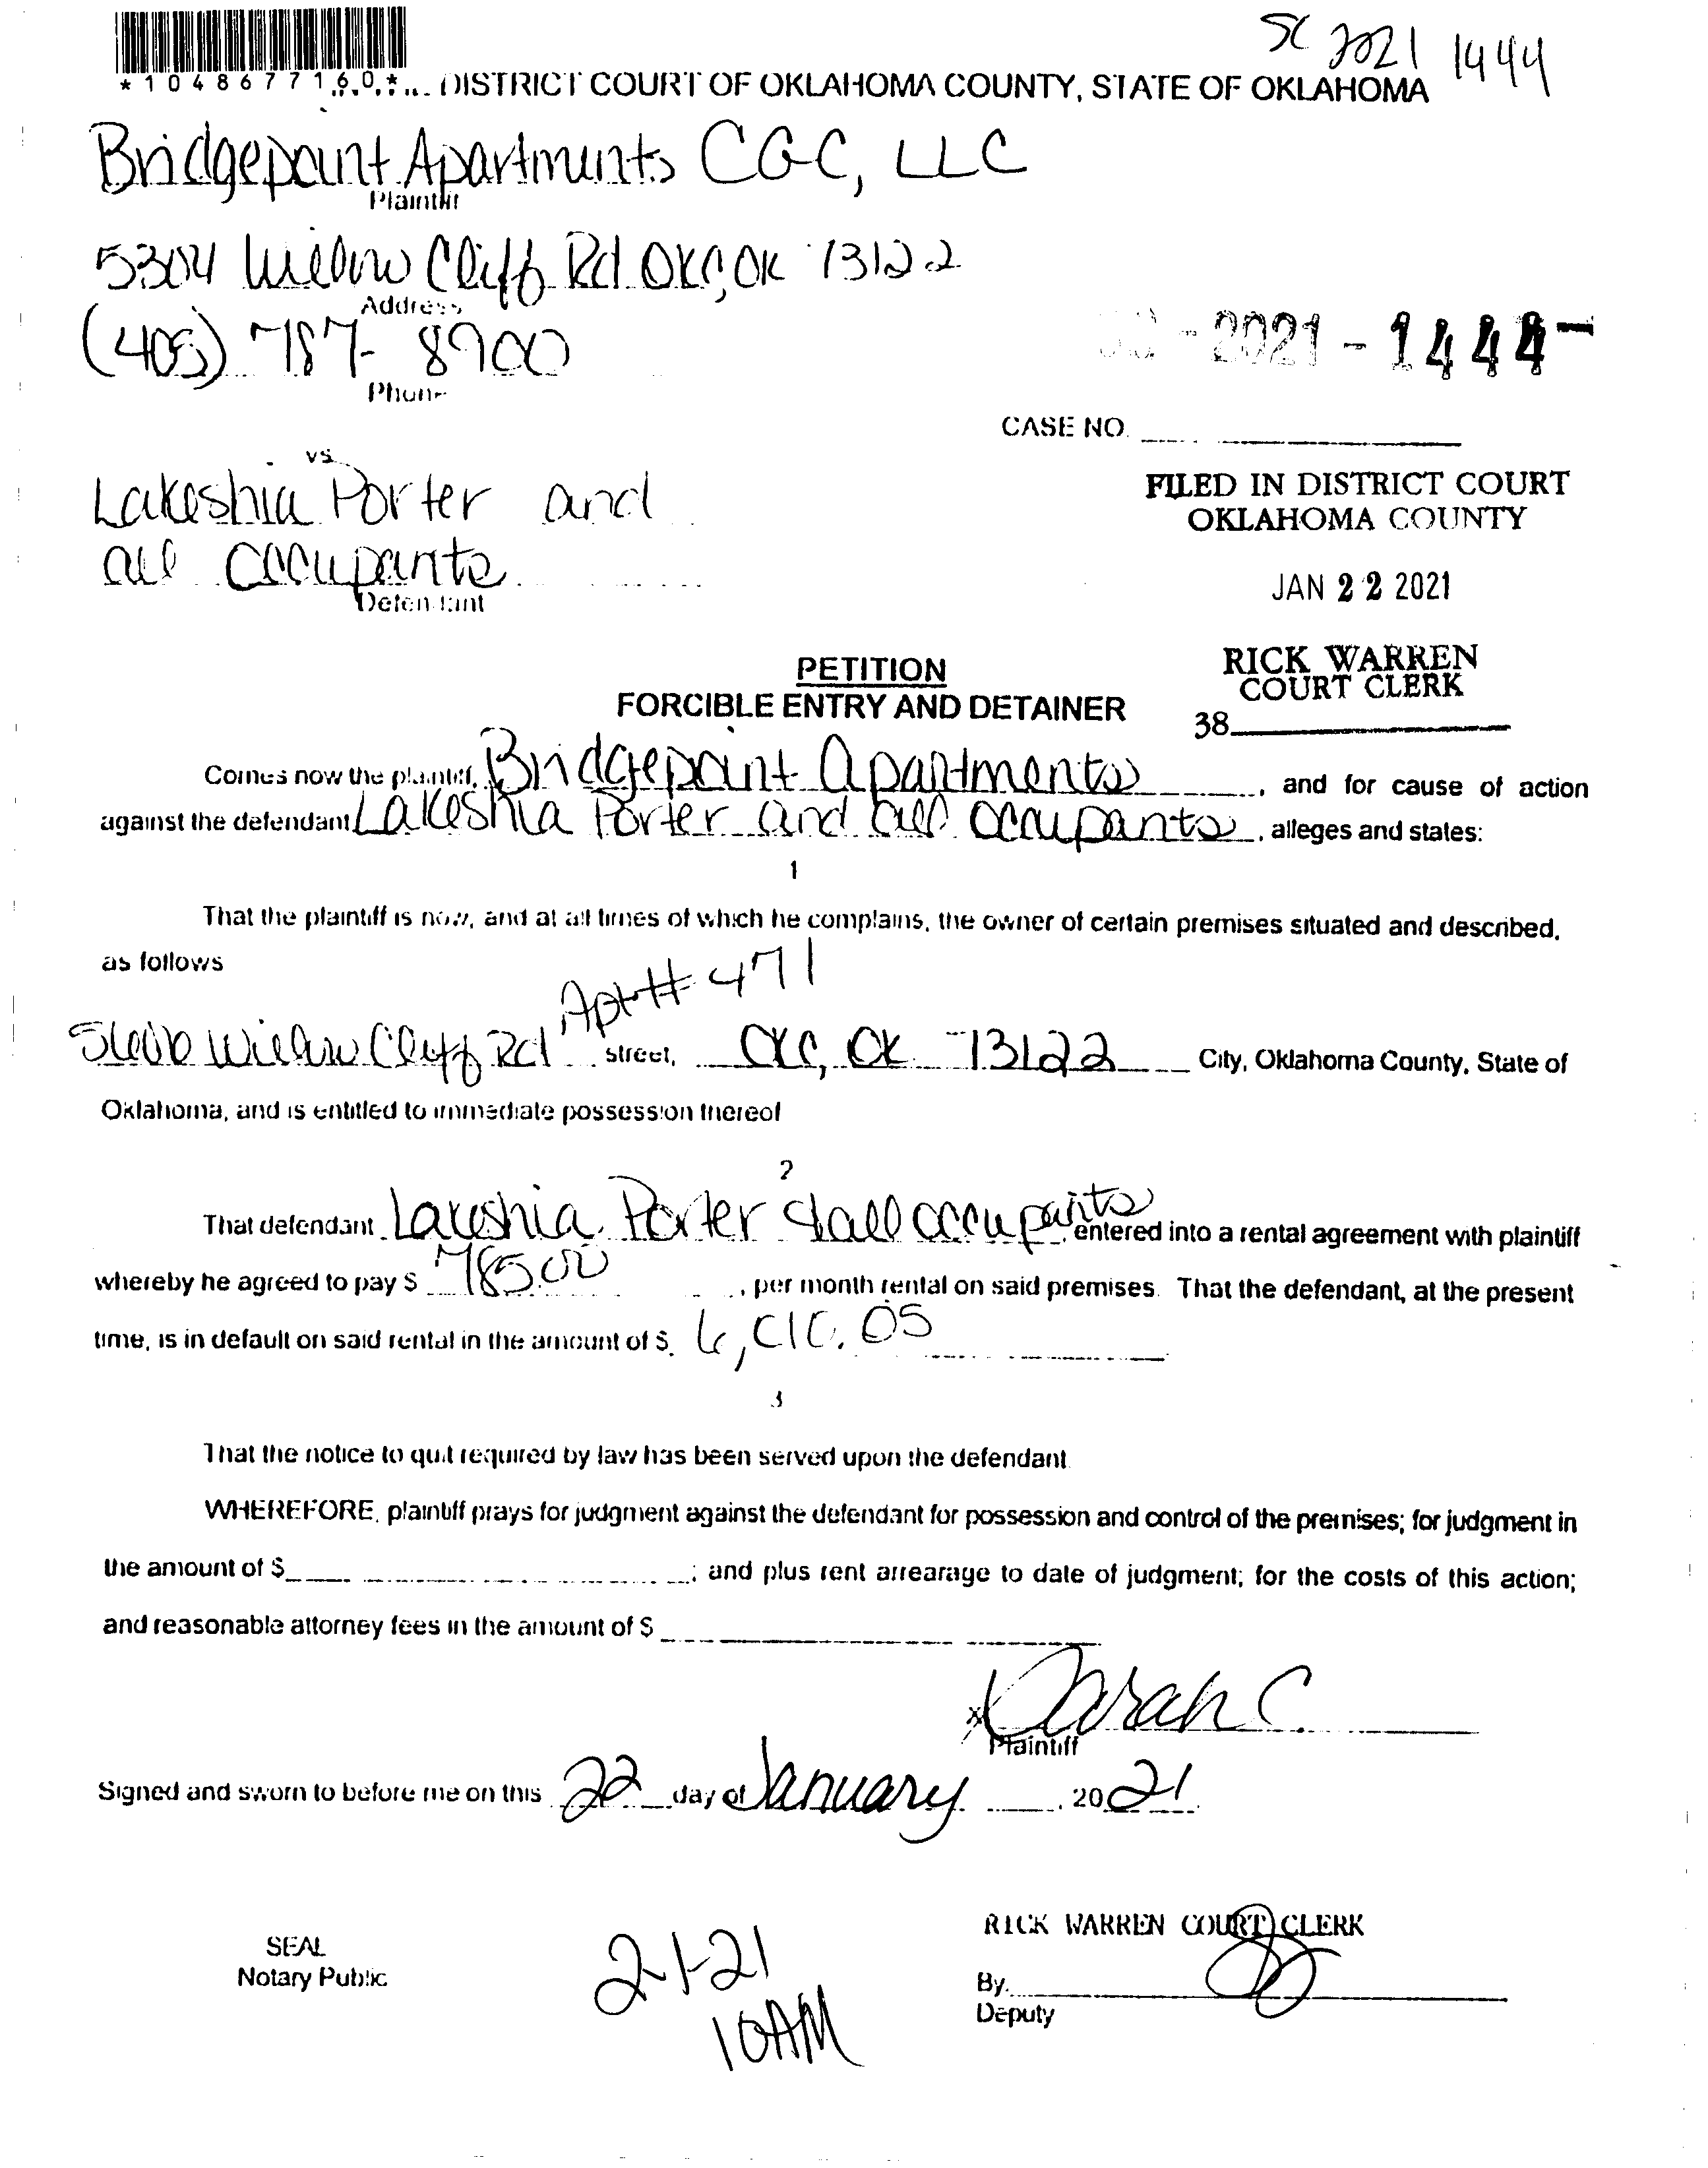 SC 2021 1444
*1048677160* DISTRICT COURT OF OKLAHOMA COUNTY, STATE OF OKLAHOMA
Bridgepoint Apartments CGC, LLC
Plaintiff
5304 Willow Cliff Rd OKC, OK 73122
Address
(405) 787-8900
Phone
-2021-1444-
CASE NO.
vs.
Lakeshia Porter and
all occupants
Defendant
FILED IN DISTRICT COURT
OKLAHOMA COUNTY
JAN 22 2021
RICK WARREN
COURT CLERK
38
PETITION
FORCIBLE ENTRY AND DETAINER
Comes now the plaintiff, Bridgepoint Apartments, and for cause of action
against the defendant Lakeshia Porter and all occupants, alleges and states:
1
That the plaintiff is now, and at all times of which he complains, the owner of certain premises situated and described,
as follows
Apt # 471
Willow Cliff Rd street, OKC, OK 73122 City, Oklahoma County, State of
Oklahoma, and is entitled to immediate possession thereof
2
That defendant Lakeshia Porter & all occupants entered into a rental agreement with plaintiff
whereby he agreed to pay $ 785.00, per month rental on said premises. That the defendant, at the present
time, is in default on said rental in the amount of $
3
That the notice to quit required by law has been served upon the defendant
WHEREFORE, plaintiff prays for judgment against the defendant for possession and control of the premises; for judgment in
the amount of $ ; and plus rent arrearage to date of judgment; for the costs of this action;
and reasonable attorney fees in the amount of $
x Sarah C.
Plaintiff
Signed and sworn to before me on this 22 day of January, 2021
SEAL
Notary Public
2-1-21
10AM
RICK WARREN COURT CLERK
By.
Deputy